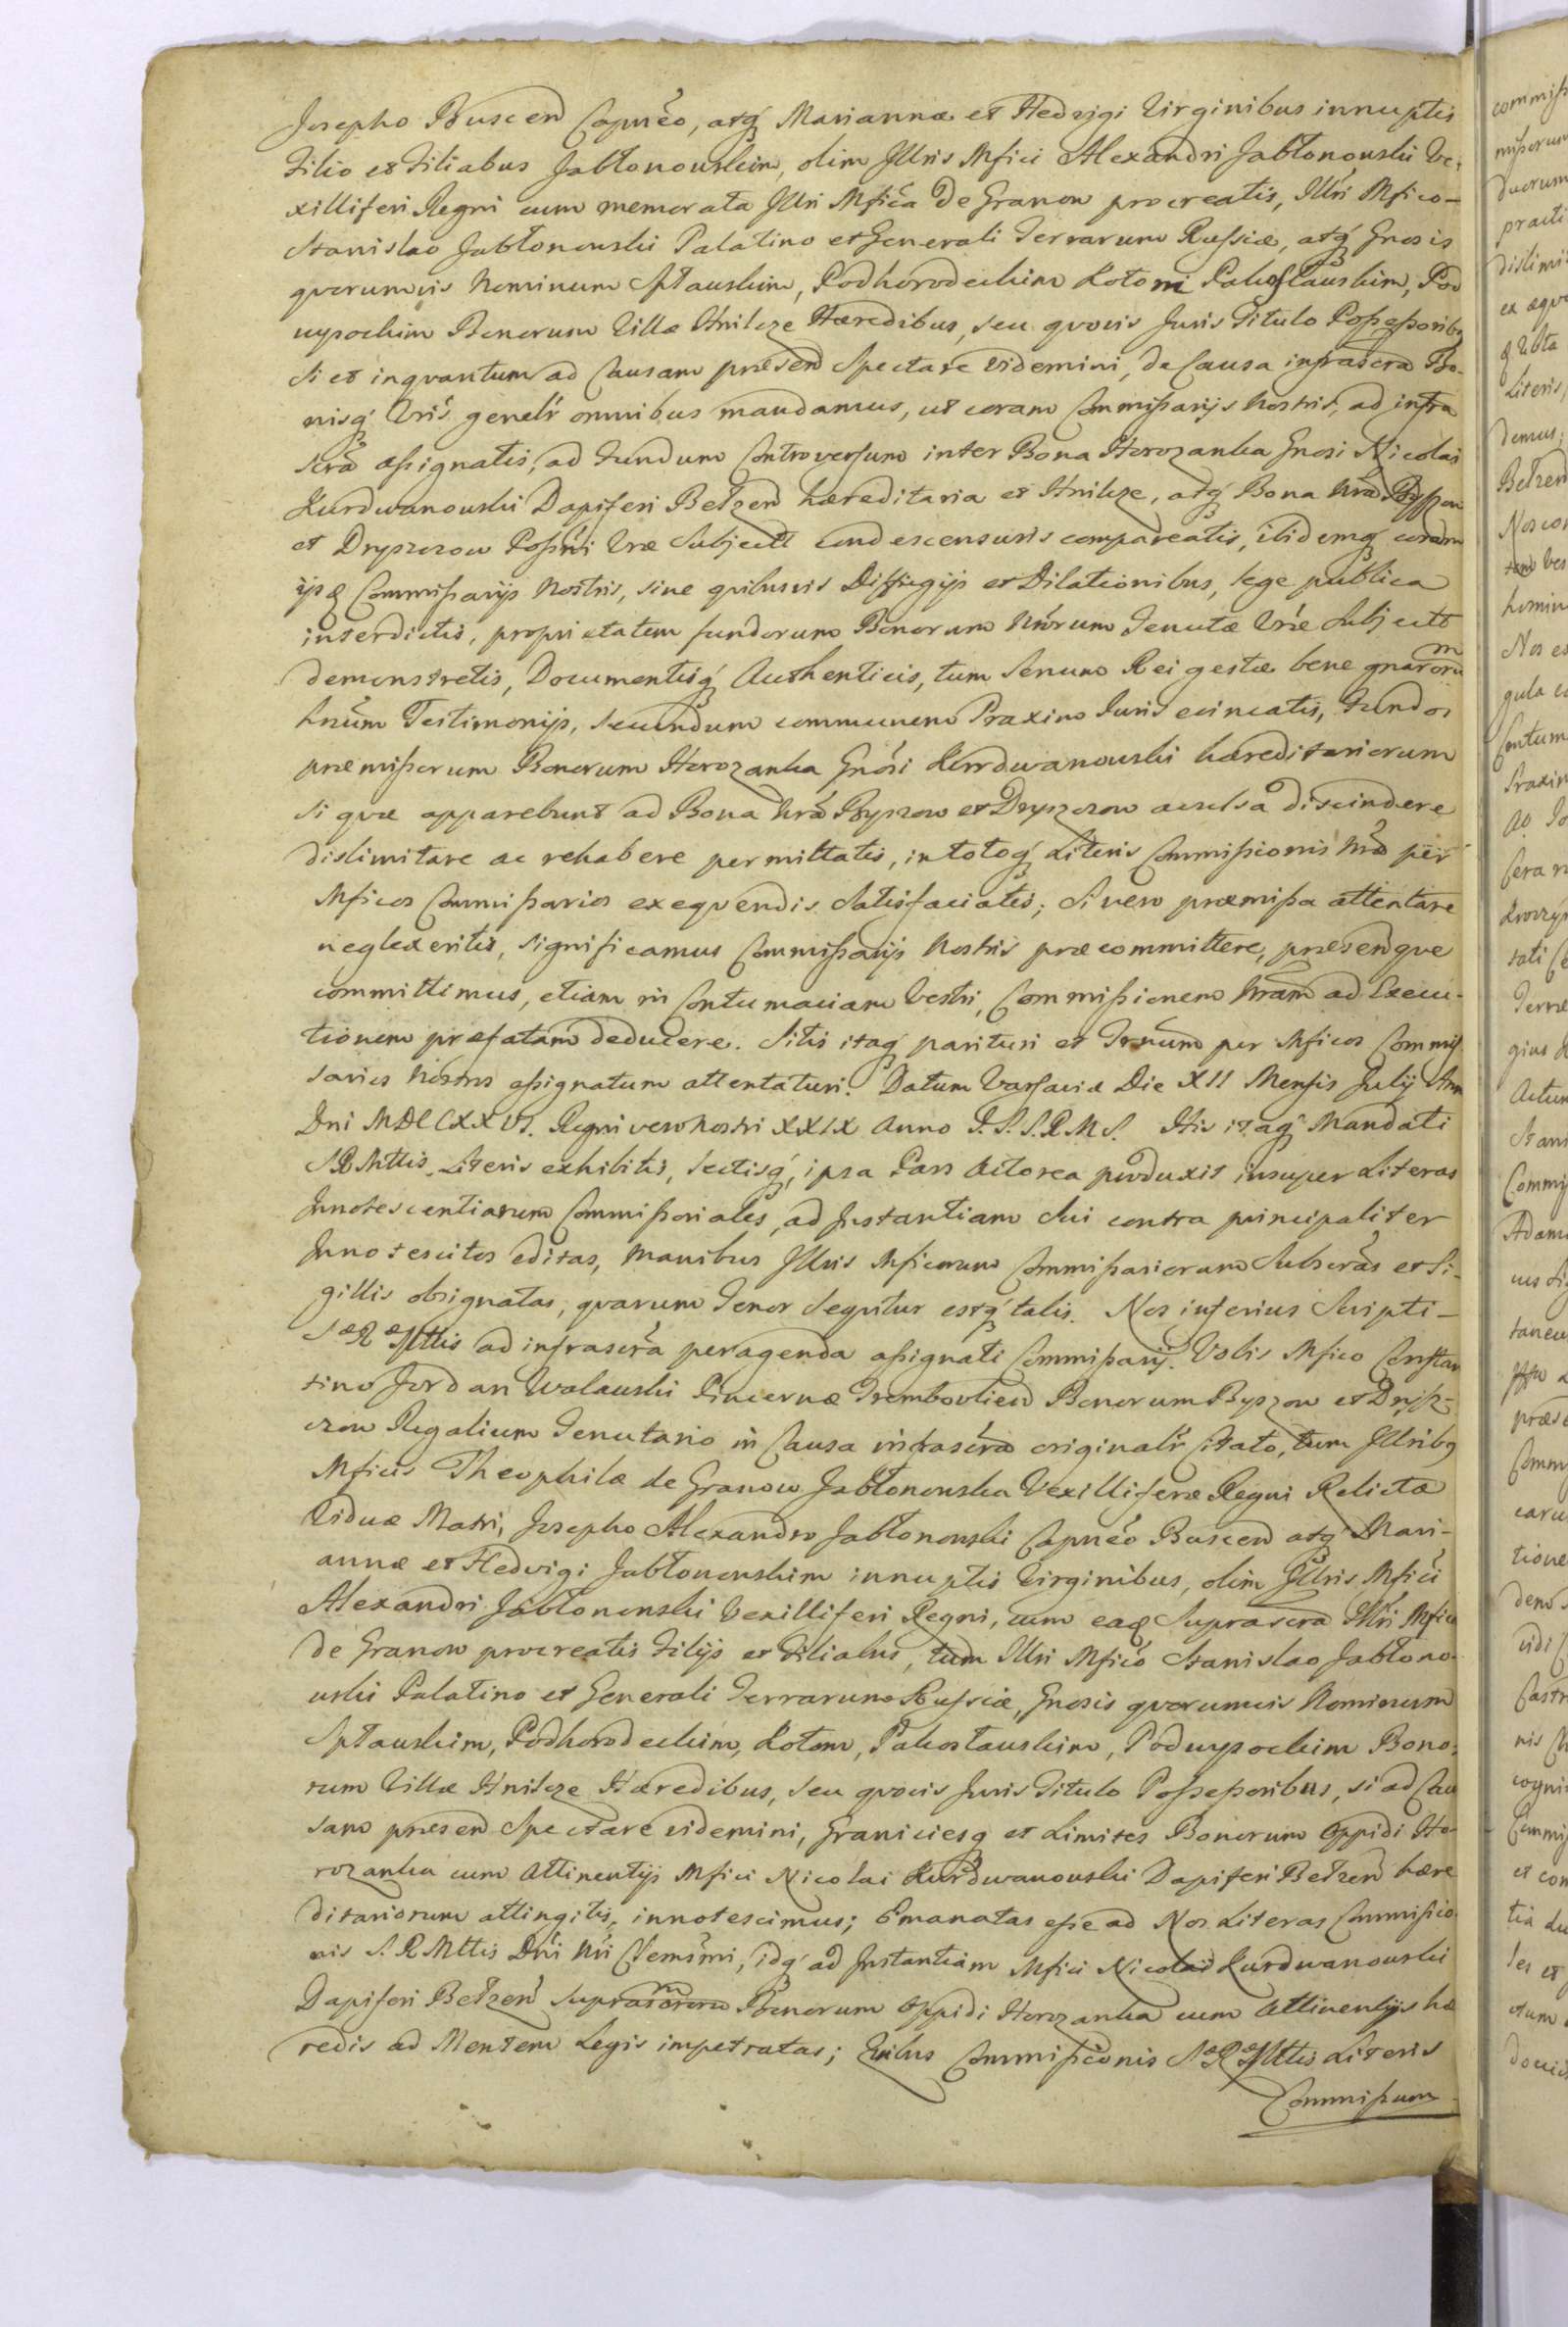 Josepho Buscen Capneo, atq Mariannæ et Hedvigi Virginibus innuptis
Filio et Filiabus Jabłonowskim, olim Illris Mfici Alexandri Jabłonowski Ve-
xilliferi Regni cum memorata Illri Mfica de Granow procreatis, Illri Mfico
Stanislao Jabłonowski Palatino et Generali Terrarum Russiæ, atq Gnosis
quorumvis Nominum Spławskim, Podhorodeckim Kotom Pakosławskim, Pod
wysockim Bonorum Villæ Hnilcze Hæredibus, seu quovis Juris Titulo Possessoribq
Si et inquantum ad Causam præsen Spectare videmini, de Causa infrascra Bo-
nisq Vris genelr omnibus mandamus, ut coram Commissarijs Nostris, ad infra
scra assignatis, ad Fundum Controversum inter Bona Horozanka Gnosi Nicolai
Kurdwanowski Dapiferi Bełzen hæreditaria et Hnilcze, atq Bona Nra Byszow
et Dryszczow Possni Vræ Subjectt condescensuris compareatis, ibidemq coram
ijsq Commissarijs Nostris, sine quibusvis Diffugijs et Dilationibus, lege publica
interdictis, proprietatem fundorum Bonorum Nrorum Tenutæ Vræ Subjectt
demonstretis, Documentisq Authenticis, tum Senum Rei gestæ bene gnarorum
hnum Testimonijs, secundum communem Praxim Juris evincatis, Fundos
præmissorum Bonorum Horozanka Gnosi Kurdwanowski hæreditariorum
si quæ apparebunt ad Bona Nra Byszow et Dryszczow avulsa discindere
dislimitare ac rehabere permittatis, in totoq Literis Commissionis Nræ per
Mficos Commissarios exequendis Satisfaciatis; Si vero præmissa attentare
neglexeritis, significamus Commissarijs Nostris præcommittere, præsenque
committimus, etiam in Contumaciam Vestri, Commissionem Nram ad Execu-
tionem præfatam deducere. Sitis itaq parituri et Trnum per Mficos Commis
sarios Nostros assignatum attentaturi. Datum Varsaviæ Die XII Mensis Julij Ann
Dni MDCCXXVI. Regni vero Nostri XXIX Anno P.S.S.R.M.S. His itaq Mandati
SRMttis Literis exhibitis, lectisq, ipsa Pars Actorea produxit insuper Literas
Innotescentiarum Commissoriales, ad Instantiam Sui contra principaliter
Innotescitos editas, manibus Illris Mficorum Commissariorum Subscras et Si-
gillis obsignatas, quarum Tenor Sequitur estq talis. Nos inferius Scripti
SæRæMttis ad infrascra peragenda assignati Commissarij. Vobis Mfico Constan
tino Jordan Walawski Pincernæ Trembovlien Bonorum Byszow et Drysz-
czow Regalium Tenutario in Causa infrascra originalr Citato, tum Illribq
Mficis Theophilæ de Granow Jabłonowska Vexilliferæ Regni Relictæ
Viduæ Matri, Josepho Alexandro Jabłonowski Capneo Buscen atq Mari-
annæ et Hedvigi Jabłonowskim innuptis Virginibus, olim Illris Mfici
Alexandri Jabłonowski Vexilliferi Regni, cum eaq Suprascra Illri Mfica
de Granow procreatis Filijs et Filiabus, tum Illri Mfico Stanislao Jabłono-
wski Palatino et Generali Terrarum Russiæ, Gnosis quorumvis Nominum
Spławskim, Podhorodeckim, Kotom, Pakosławskim, Podwysockim Bono-
rum Villæ Hnilcze Hæredibus, seu quovis Juris Titulo Possessoribus, si ad Cau
sam præsen Spectare videmini, Graniciesq et Limites Bonorum Oppidi Ho-
rozanka cum Attinentijs Mfici Nicolai Kurdwanowski Dapiferi Bełzen hære
ditariorum attingitis, innotescimus; Emanatas esse ad Nos Literas Commissio
nis S.R.Mttis Dni Nri Clemsmi, idq ad Instantiam Mfici Nicolai Kurdwanowski
Dapiferi Bełzen suprascrorum Bonorum Oppidi Horozanka cum Attinentijs hæ
redis ad Mentem Legis impetratas; Quibus Commissionis SæRæMttis Literis
Commissum